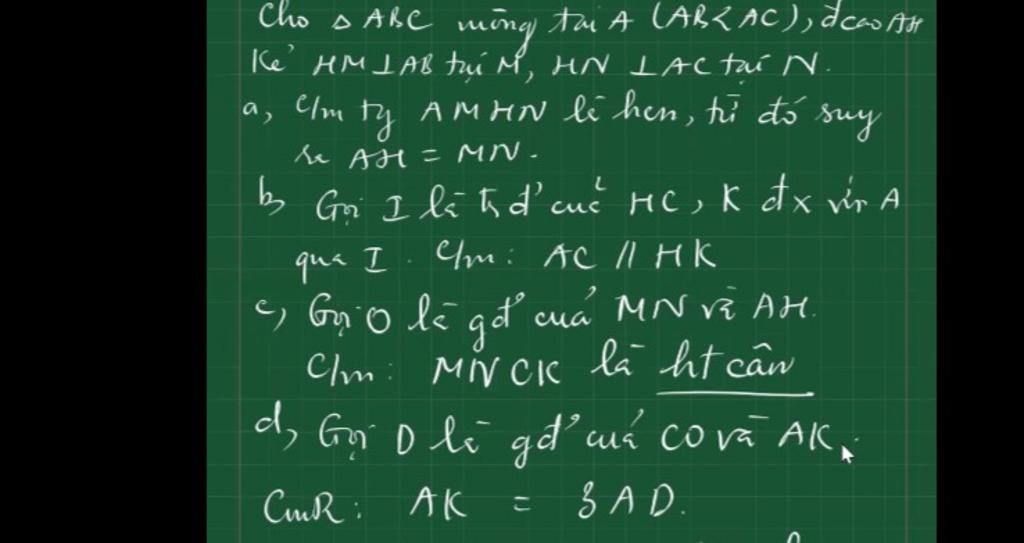 Cho △ ABC vuông tại A (AB < AC), đcao AH
Kẻ HM ⊥ AB tại M, HN ⊥ AC tại N.
a, C/m tg AMHN là hcn, từ đó suy
ra AH = MN.
b, Gọi I là tđ của HC, K đx với A
qua I. C/m: AC // HK
c, Gọi O là gđ của MN và AH.
C/m: MNCK là ht cân
d, Gọi D là gđ của CO và AK.
CmR: AK = 3AD.